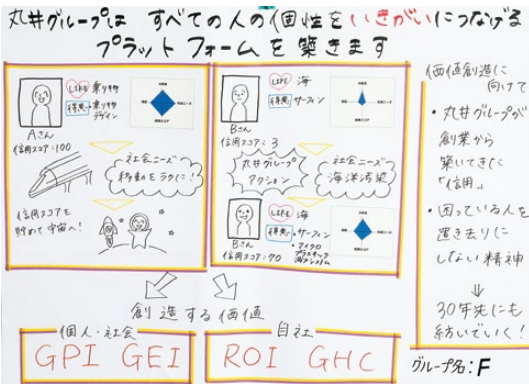 丸井グループは すべての人の個性をいきがいにつなげる
プラットフォームを築きます
LIKE 乗り物
得意 乗り物
デザイン
Aさん
信用スコア:100
社会ニーズ
移動をラクに!
信用スコアを
貯めて宇宙へ!
LIKE 海
得意 サーフィン
Bさん
信用スコア:3
丸井グループ
アクション
社会ニーズ
海洋汚染
LIKE 海
得意 ・サーフィン
・マイクロ
プラスチック
Bさん
信用スコア:90
価値創造に
向けて
・丸井グループが
創業から
築いてきた
「信用」
・困っている人を
置き去りに
しない精神
30年先にも
紡いでいく!
創造する価値
個人・社会
GPI GEI
自社
ROI GHC
グループ名:F